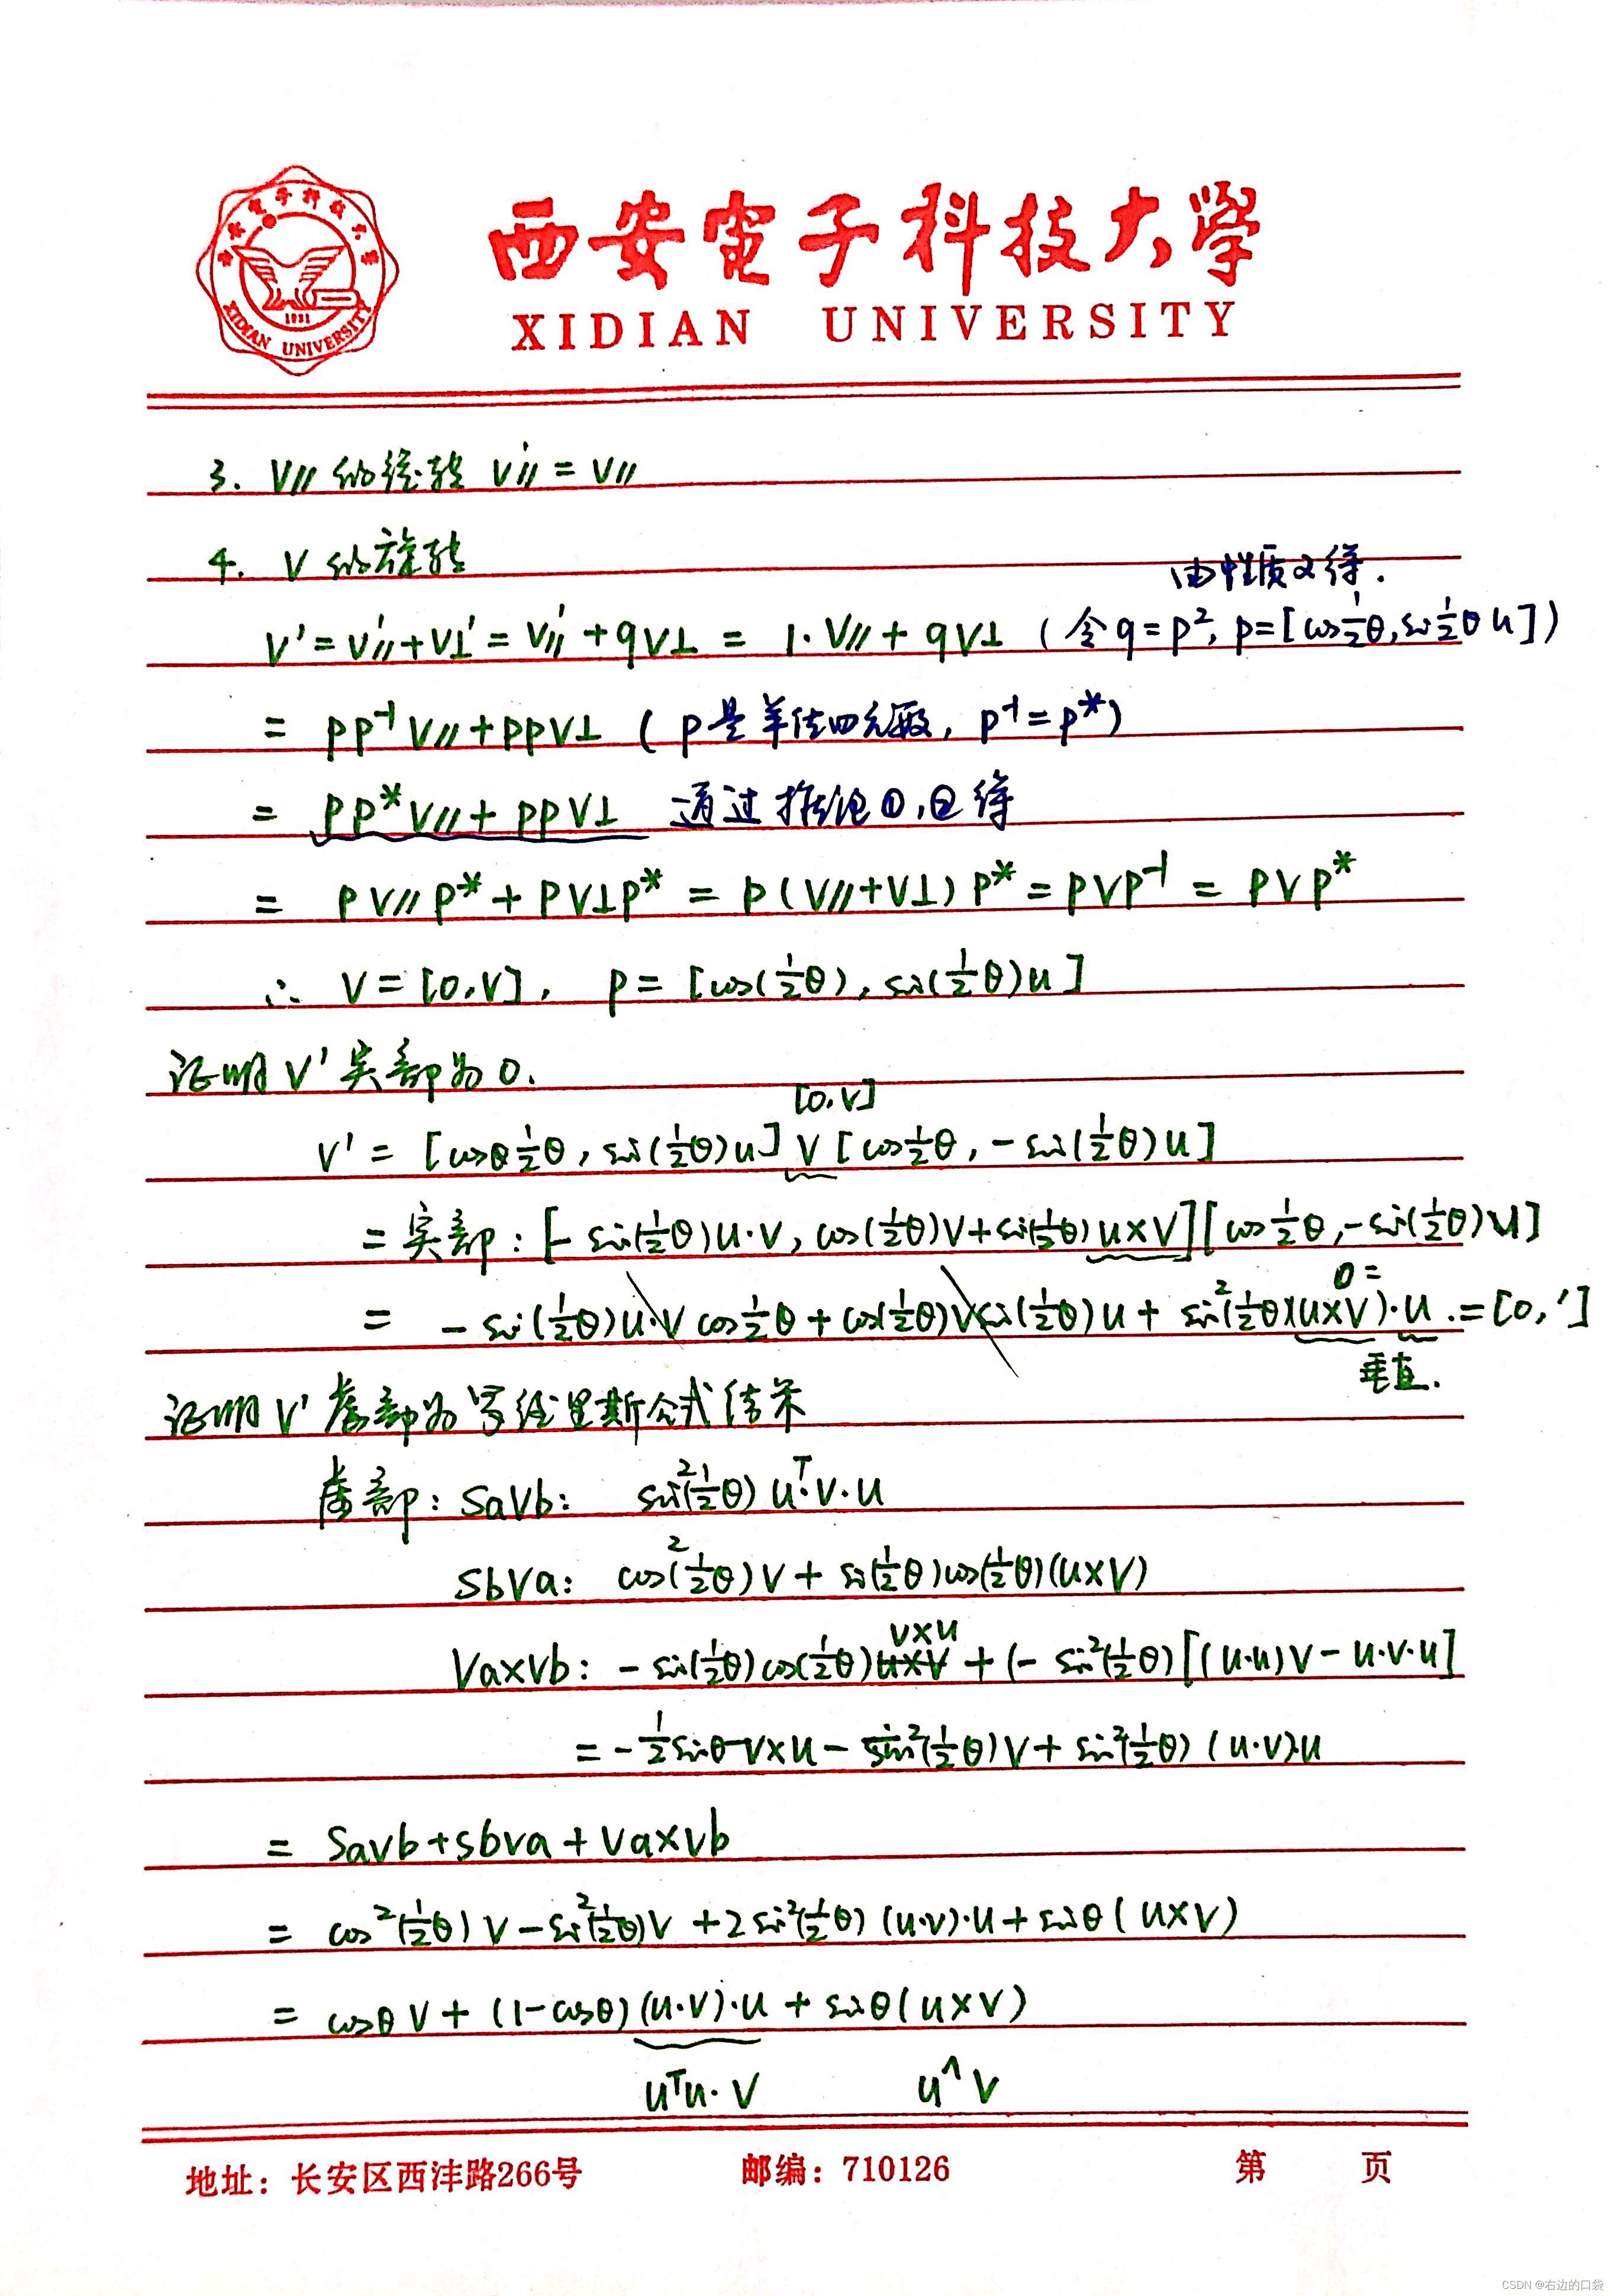 西安電子科技大學
XIDIAN UNIVERSITY
1931
XIDIAN UNIVERSITY
3. V// 的旋转 V//' = V//
4. V 的旋转
由性质2得.
V' = V//' + V⊥' = V//' + qV⊥ = 1·V// + qV⊥ (令q=p², p=[cos½θ, sin½θ u])
= pp⁻¹V// + ppV⊥ (p是单位四元数, p⁻¹=p*)
= pp*V// + ppV⊥ 通过推论①,②得
= pV//p* + pV⊥p* = p(V//+V⊥)p* = pVp⁻¹ = pVp*
∴ V = [0,V], p = [cos(½θ), sin(½θ)u]
证明 V' 实部为 0.
[0,V]
V' = [cosθ½θ, sin(½θ)u] V [cos½θ, -sin(½θ)u]
= 实部: [-sin(½θ)u·V, cos(½θ)V+sin(½θ)u×V][cos½θ, -sin(½θ)u]
0=
= -sin(½θ)u·V cos½θ + cos(½θ)V sin(½θ)u + sin²(½θ)(u×V)·u .= [0,']
垂直.
证明 V' 虚部为罗德里斯公式结果
虚部: SaVb: sin²(½θ) uᵀ·V·u
SbVa: cos²(½θ)V + sin(½θ)cos(½θ)(u×V)
V×u
Va×Vb: -sin(½θ)cos(½θ)u×V + (-sin²(½θ)[(u·u)V - u·V·u]
= -½sinθ V×u - sin²(½θ)V + sin²(½θ)(u·V)·u
= SaVb + SbVa + Va×Vb
= cos²(½θ)V - sin²(½θ)V + 2sin²(½θ)(u·V)·u + sinθ(u×V)
= cosθ V + (1-cosθ)(u·V)·u + sinθ(u×V)
uᵀu·V u^V
地址：长安区西沣路266号 邮编：710126 第 页
CSDN @右边的口袋